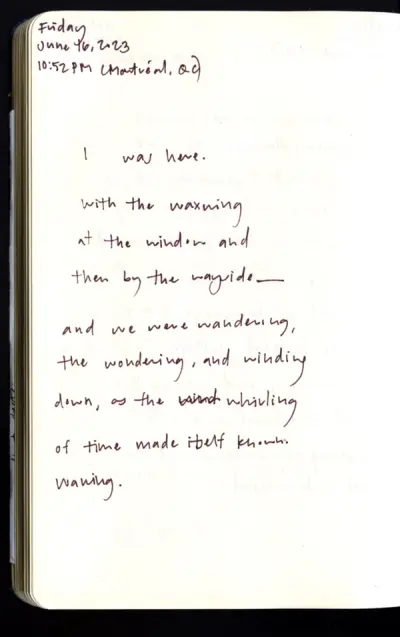 Friday
June 16, 2023
10:52 PM (Montréal, QC)
I was here.
with the waxwing
at the window and
then by the wayside—
and we were wandering,
the wondering, and winding
down, as the whirling
of time made itself known.
waning.